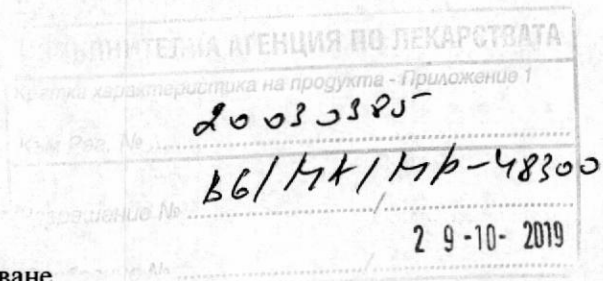 ИЗПЪЛНИТЕЛНА АГЕНЦИЯ ПО ЛЕКАРСТВАТА
Кратка характеристика на продукта - Приложение 1
Към Рег. № 20030385
Разрешение № BG/MA/MP-48300
29-10-2019
№ /
ване